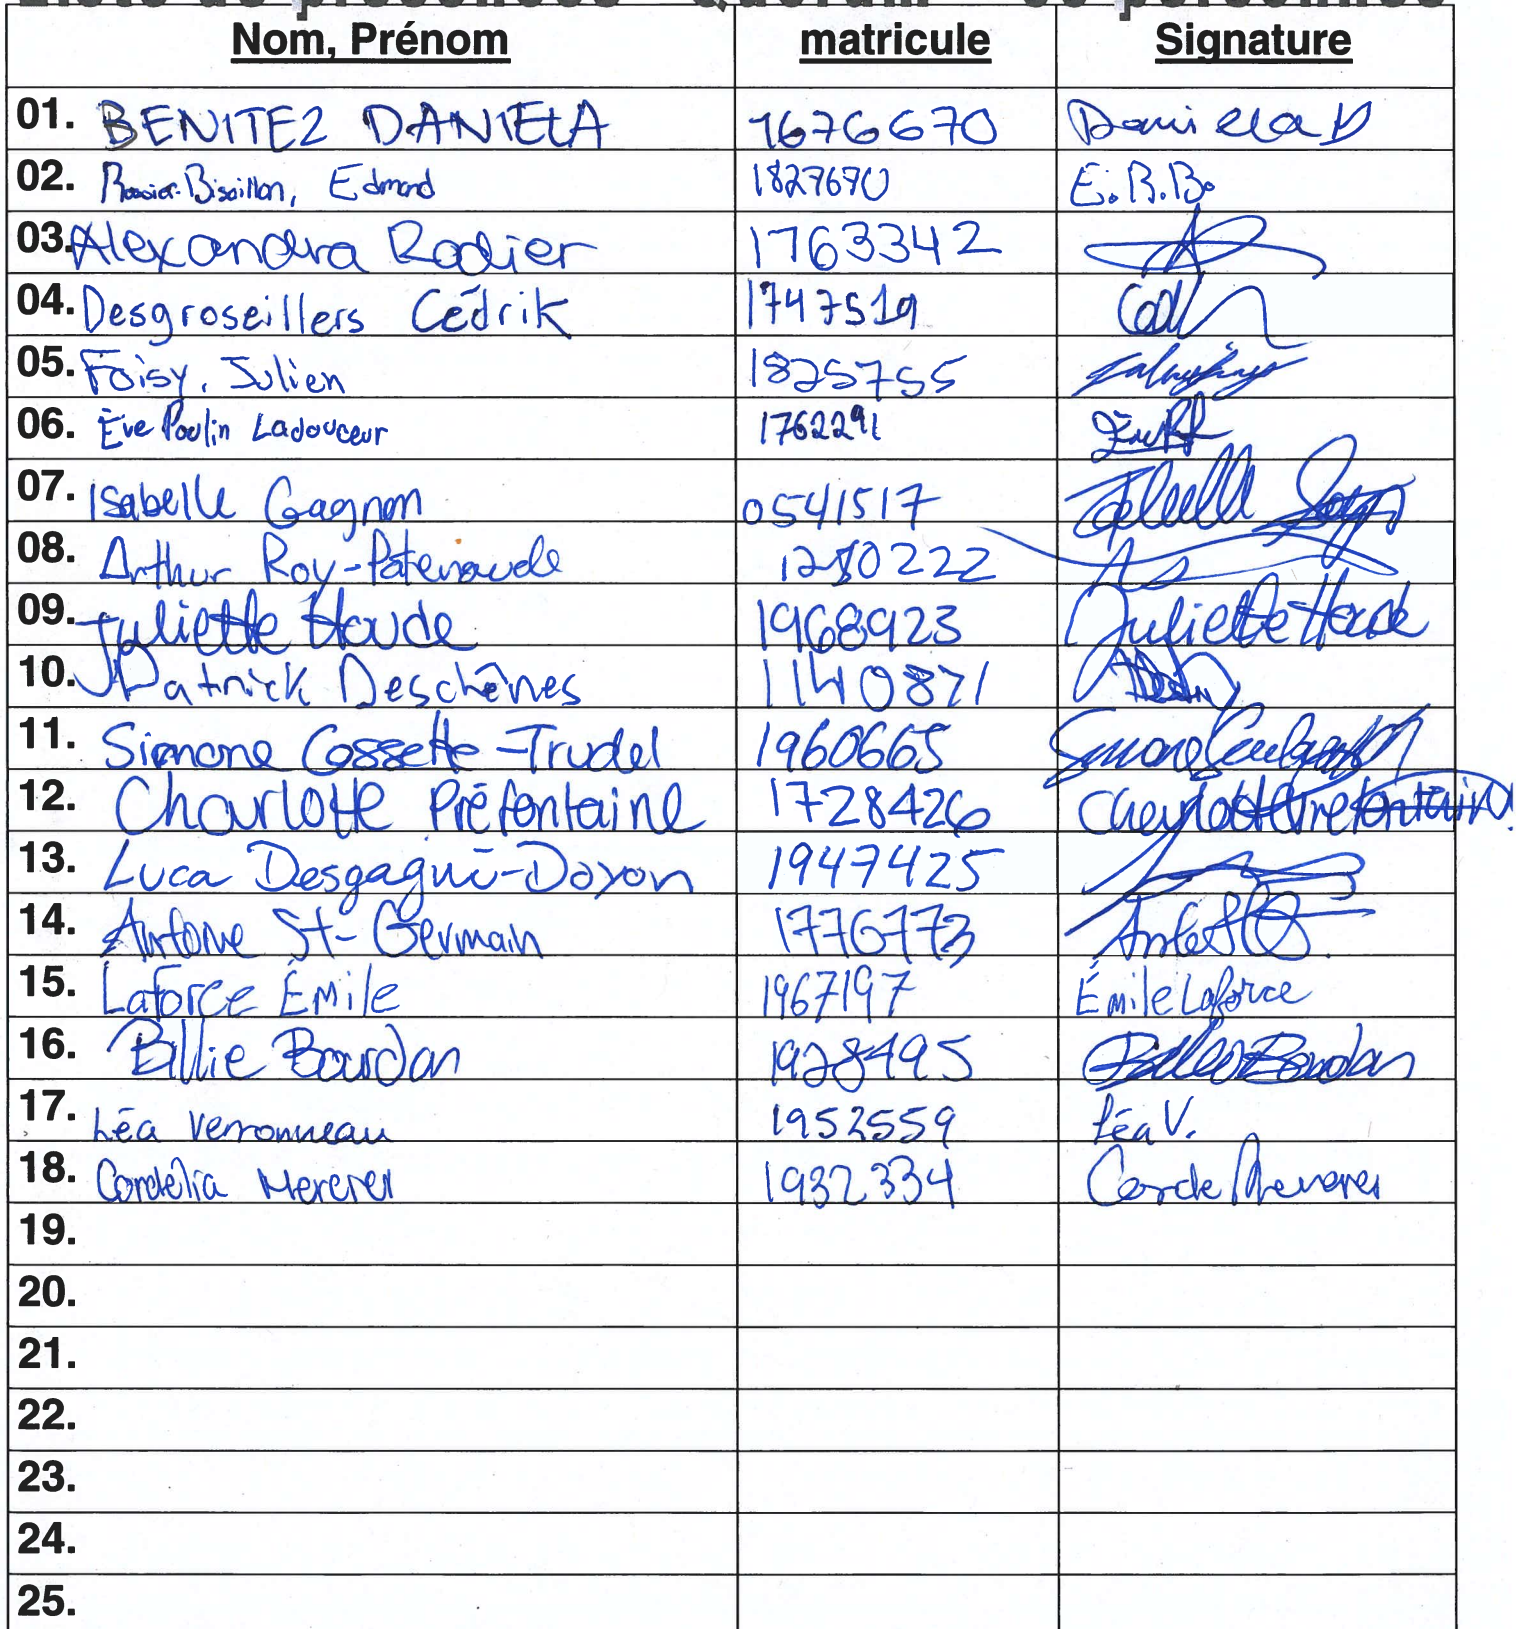 Nom, Prénom matricule Signature
01. BENITEZ DANIELA 1676670 Daniela D
02. Bisaillon, Edmond 1827670 E.R.B.
03. Alexandra Rodier 1763342
04. Desgroseillers Cédrik 1747519
05. Foisy, Julien 1825755
06. Ève Poulin Ladouceur 1762291
07. Isabelle Gagnon 0541517
08. Arthur Roy-Patenaude
09. Juliette Houde 1968923 Juliette Houde
10. Patrick Deschênes 1140871
11. Simone Cossette-Trudel 1960665
12. Charlotte Préfontaine 1728426 Charlotte Préfontaine
13. Luca Desgagné-Doyon 1947425
14. Antoine St-Germain 1776773
15. Laforce Émile 1967197 Émile Laforce
16. Billie Bourdon 1928495 Billie Bourdon
17. Léa Verronneau 1952559 Léa V.
18. Cordélia Mercier 1932334
19.
20.
21.
22.
23.
24.
25.